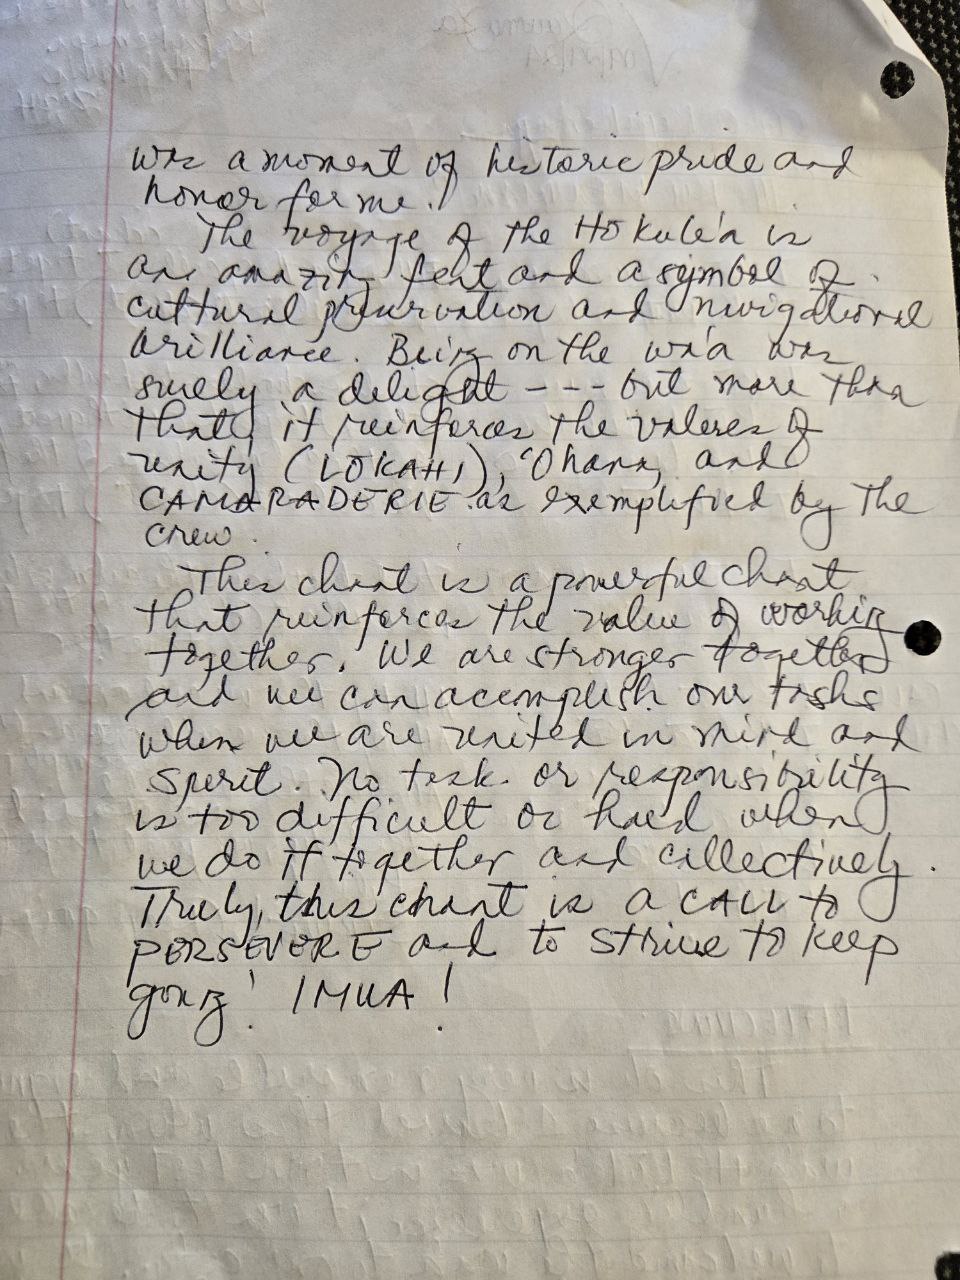 was a moment of historic pride and
honor for me.
The voyage of the Hōkule'a is
an amazing feat and a symbol of
cultural preservation and navigational
brilliance. Being on the wa'a was
surely a delight --- but more than
that, it reinforces the values of
unity (LOKAHI), 'Ohana, and
CAMARADERIE as exemplified by the
crew.
This chant is a powerful chant
that reinforces the value of working
together. We are stronger together
and we can acomplish our tasks
when we are united in mind and
spirit. No task or responsibility
is too difficult or hard when
we do it together and collectively.
Truly, this chant is a CALL to
PERSEVERE and to strive to keep
going! IMUA!